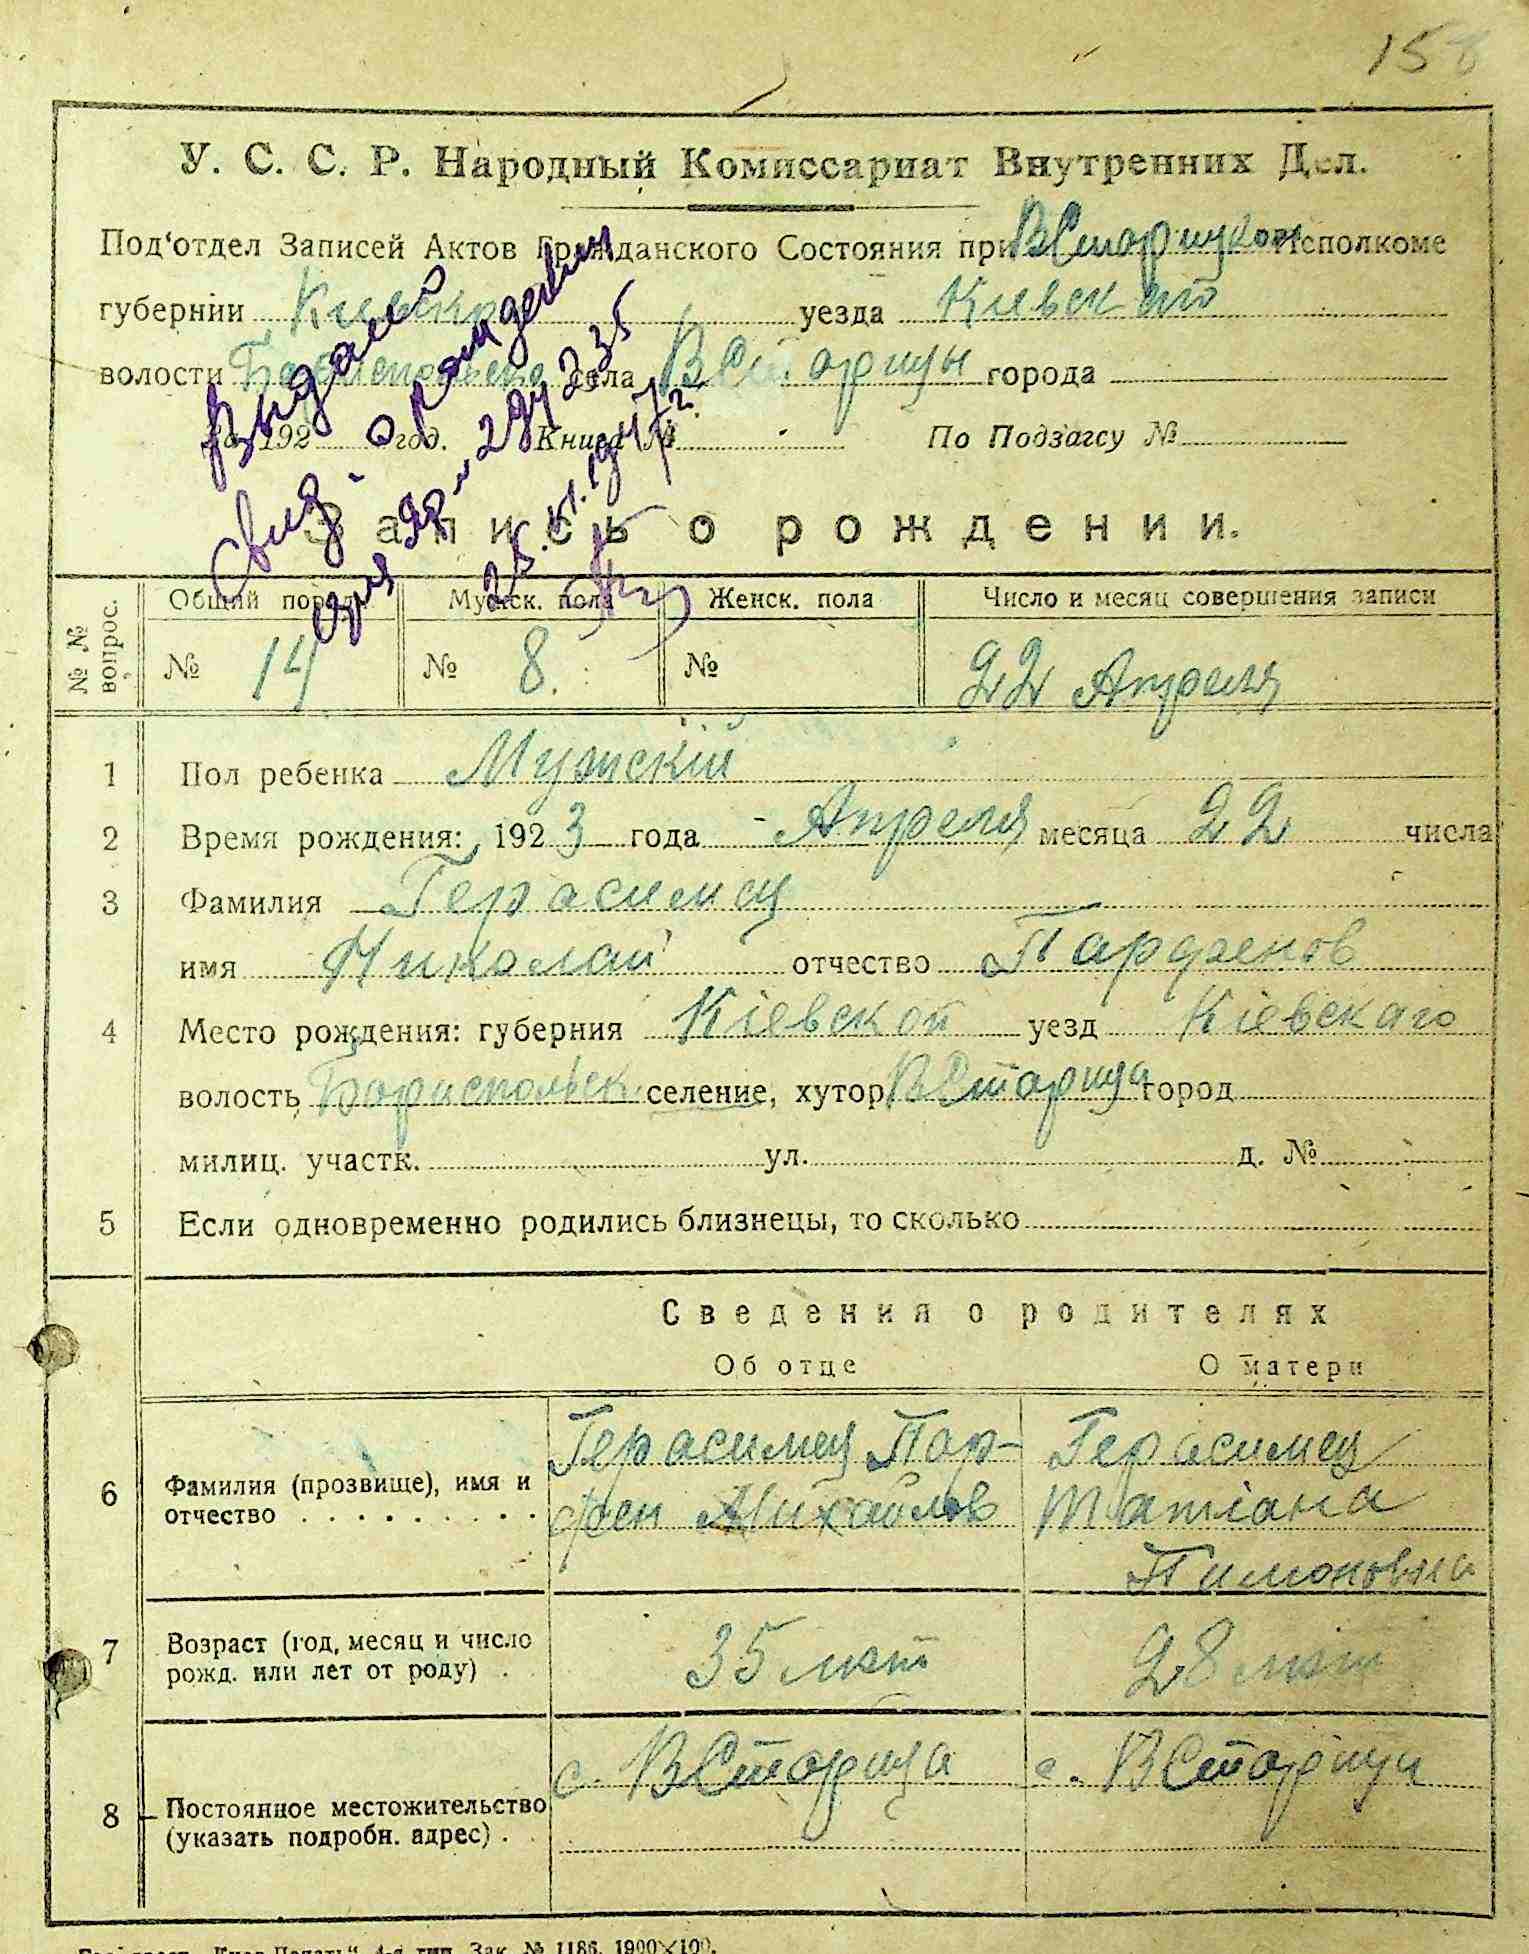 15
У. С. С. Р. Народный Комиссариат Внутренних Дел.
Под‘отдел Записей Актов Гражданского Состояния при ВСтарицком Исполкоме
губернии Киевской уезда Киевскаго
волости Бориспольской села ВСтарицы города
За 192 год. Книга № По Подзагсу №
Выдано
Свид. о рождении
25.VI.1947 г.
Запись о рождении.
№ № вопрос.
Общий поряд. Мужск. пола Женск. пола Число и месяц совершения записи
№ 14 № 8. № 22 Апреля
1 Пол ребенка Мужскій
2 Время рождения: 1923 года Апреля месяца 22 числа
3 Фамилия Герасимец
имя Николай отчество Парфенов
4 Место рождения: губерния Кіевской уезд Кіевскаго
волость Бориспольск. селение, хутор ВСтарица город
милиц. участк. ул. д. №
5 Если одновременно родились близнецы, то сколько
Сведения о родителях
Об отце О матери
6 Фамилия (прозвище), имя и отчество
Герасимец Пар-
фен Михайлов
Герасимец
Татіана
Пимоновна
7 Возраст (год, месяц и число рожд. или лет от роду) 35 лет 28 лет
8 Постоянное местожительство (указать подробн. адрес) с. ВСтарица с. ВСтарица
4-я тип. Зак. № 1186. 1900×100.